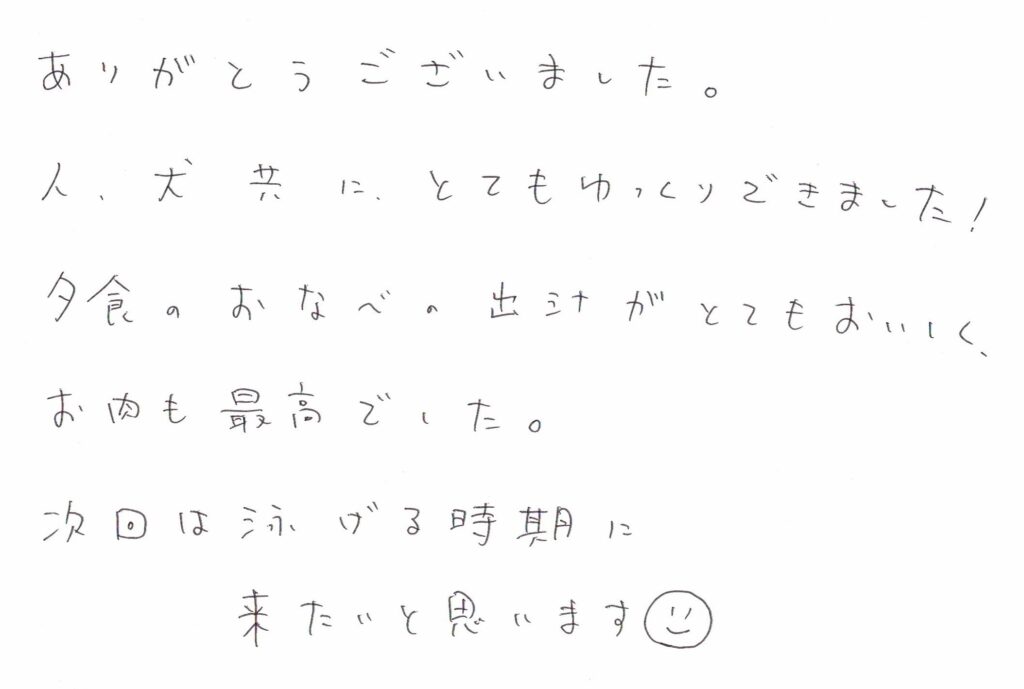 ありがとうございました。
人、犬共に、とてもゆっくりできました!
夕食のおなべの出汁がとてもおいしく、
お肉も最高でした。
次回は泳げる時期に
来たいと思います